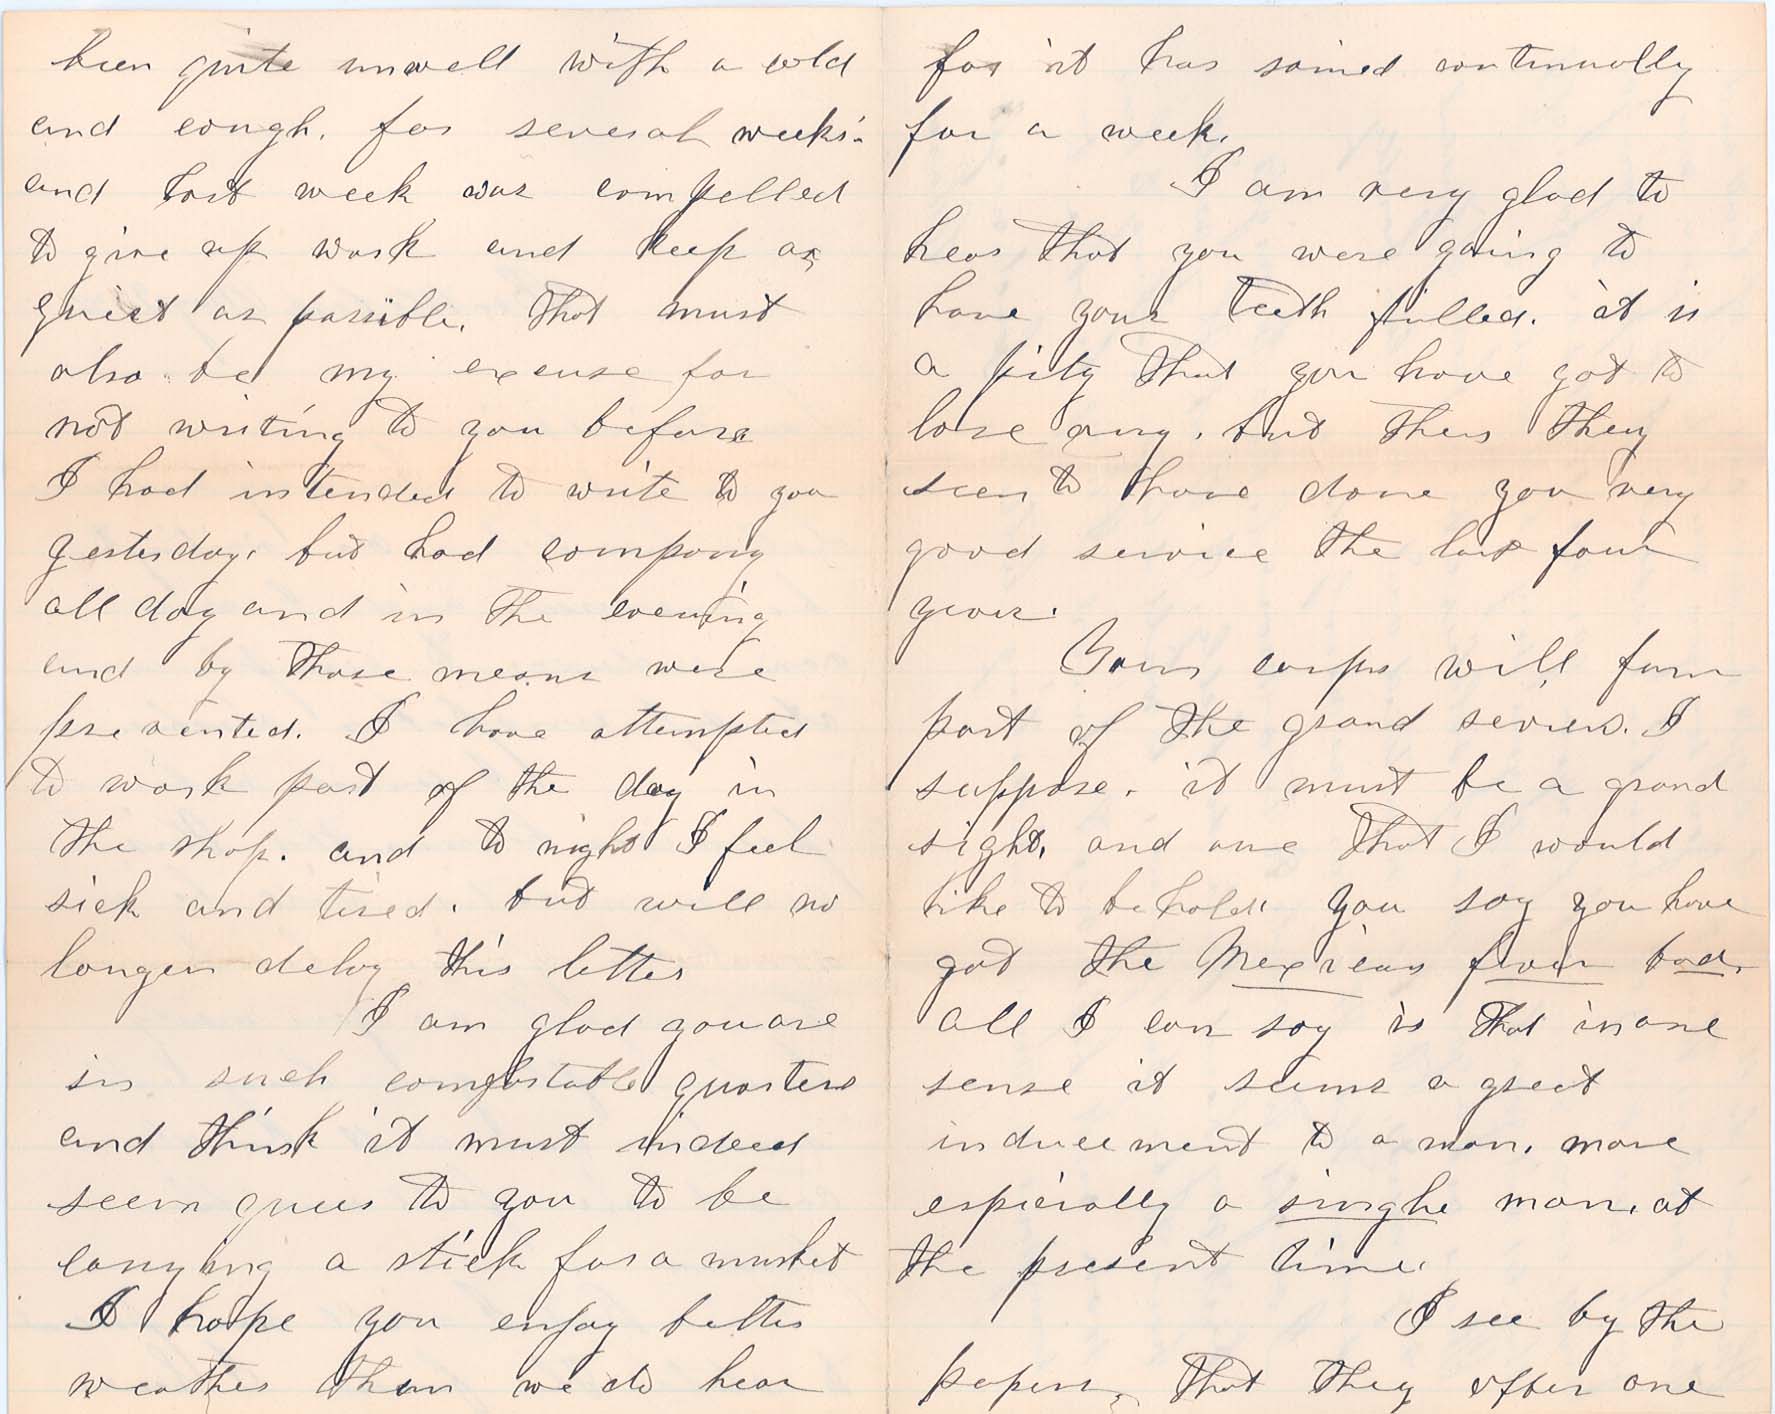 been quite unwell with a cold
and cough. for several weeks.
and last week was compelled
to give up work and keep as
quiet as possible. That must
also be my excuse for
not writing to you before
I had intended to write to you
yesterday. but had company
all day and in the evening
and by those means were
prevented. I have attempted
to work part of the day in
the shop. and to night I feel
sick and tired. but will no
longer delay this letter
I am glad you are
in such comfortable quarters
and think it must indeed
seem queer to you to be
carrying a stick for a musket
I hope you enjoy better
weather than we do hear
for it has rained continually
for a week.
I am very glad to
hear that you were going to
have your teeth filled. it is
a pity that you have got to
lose any. but then they
seem to have done you very
good service the last four
years.
Your corps will form
part of the grand review. I
suppose. it must be a grand
sight. and one that I would
like to behold. you say you have
got the Mexican fever bad.
all I can say is that in one
sense it seems a great
inducement to a man. more
espicially a single man. at
the present time.
I see by the
papers, that they offer one